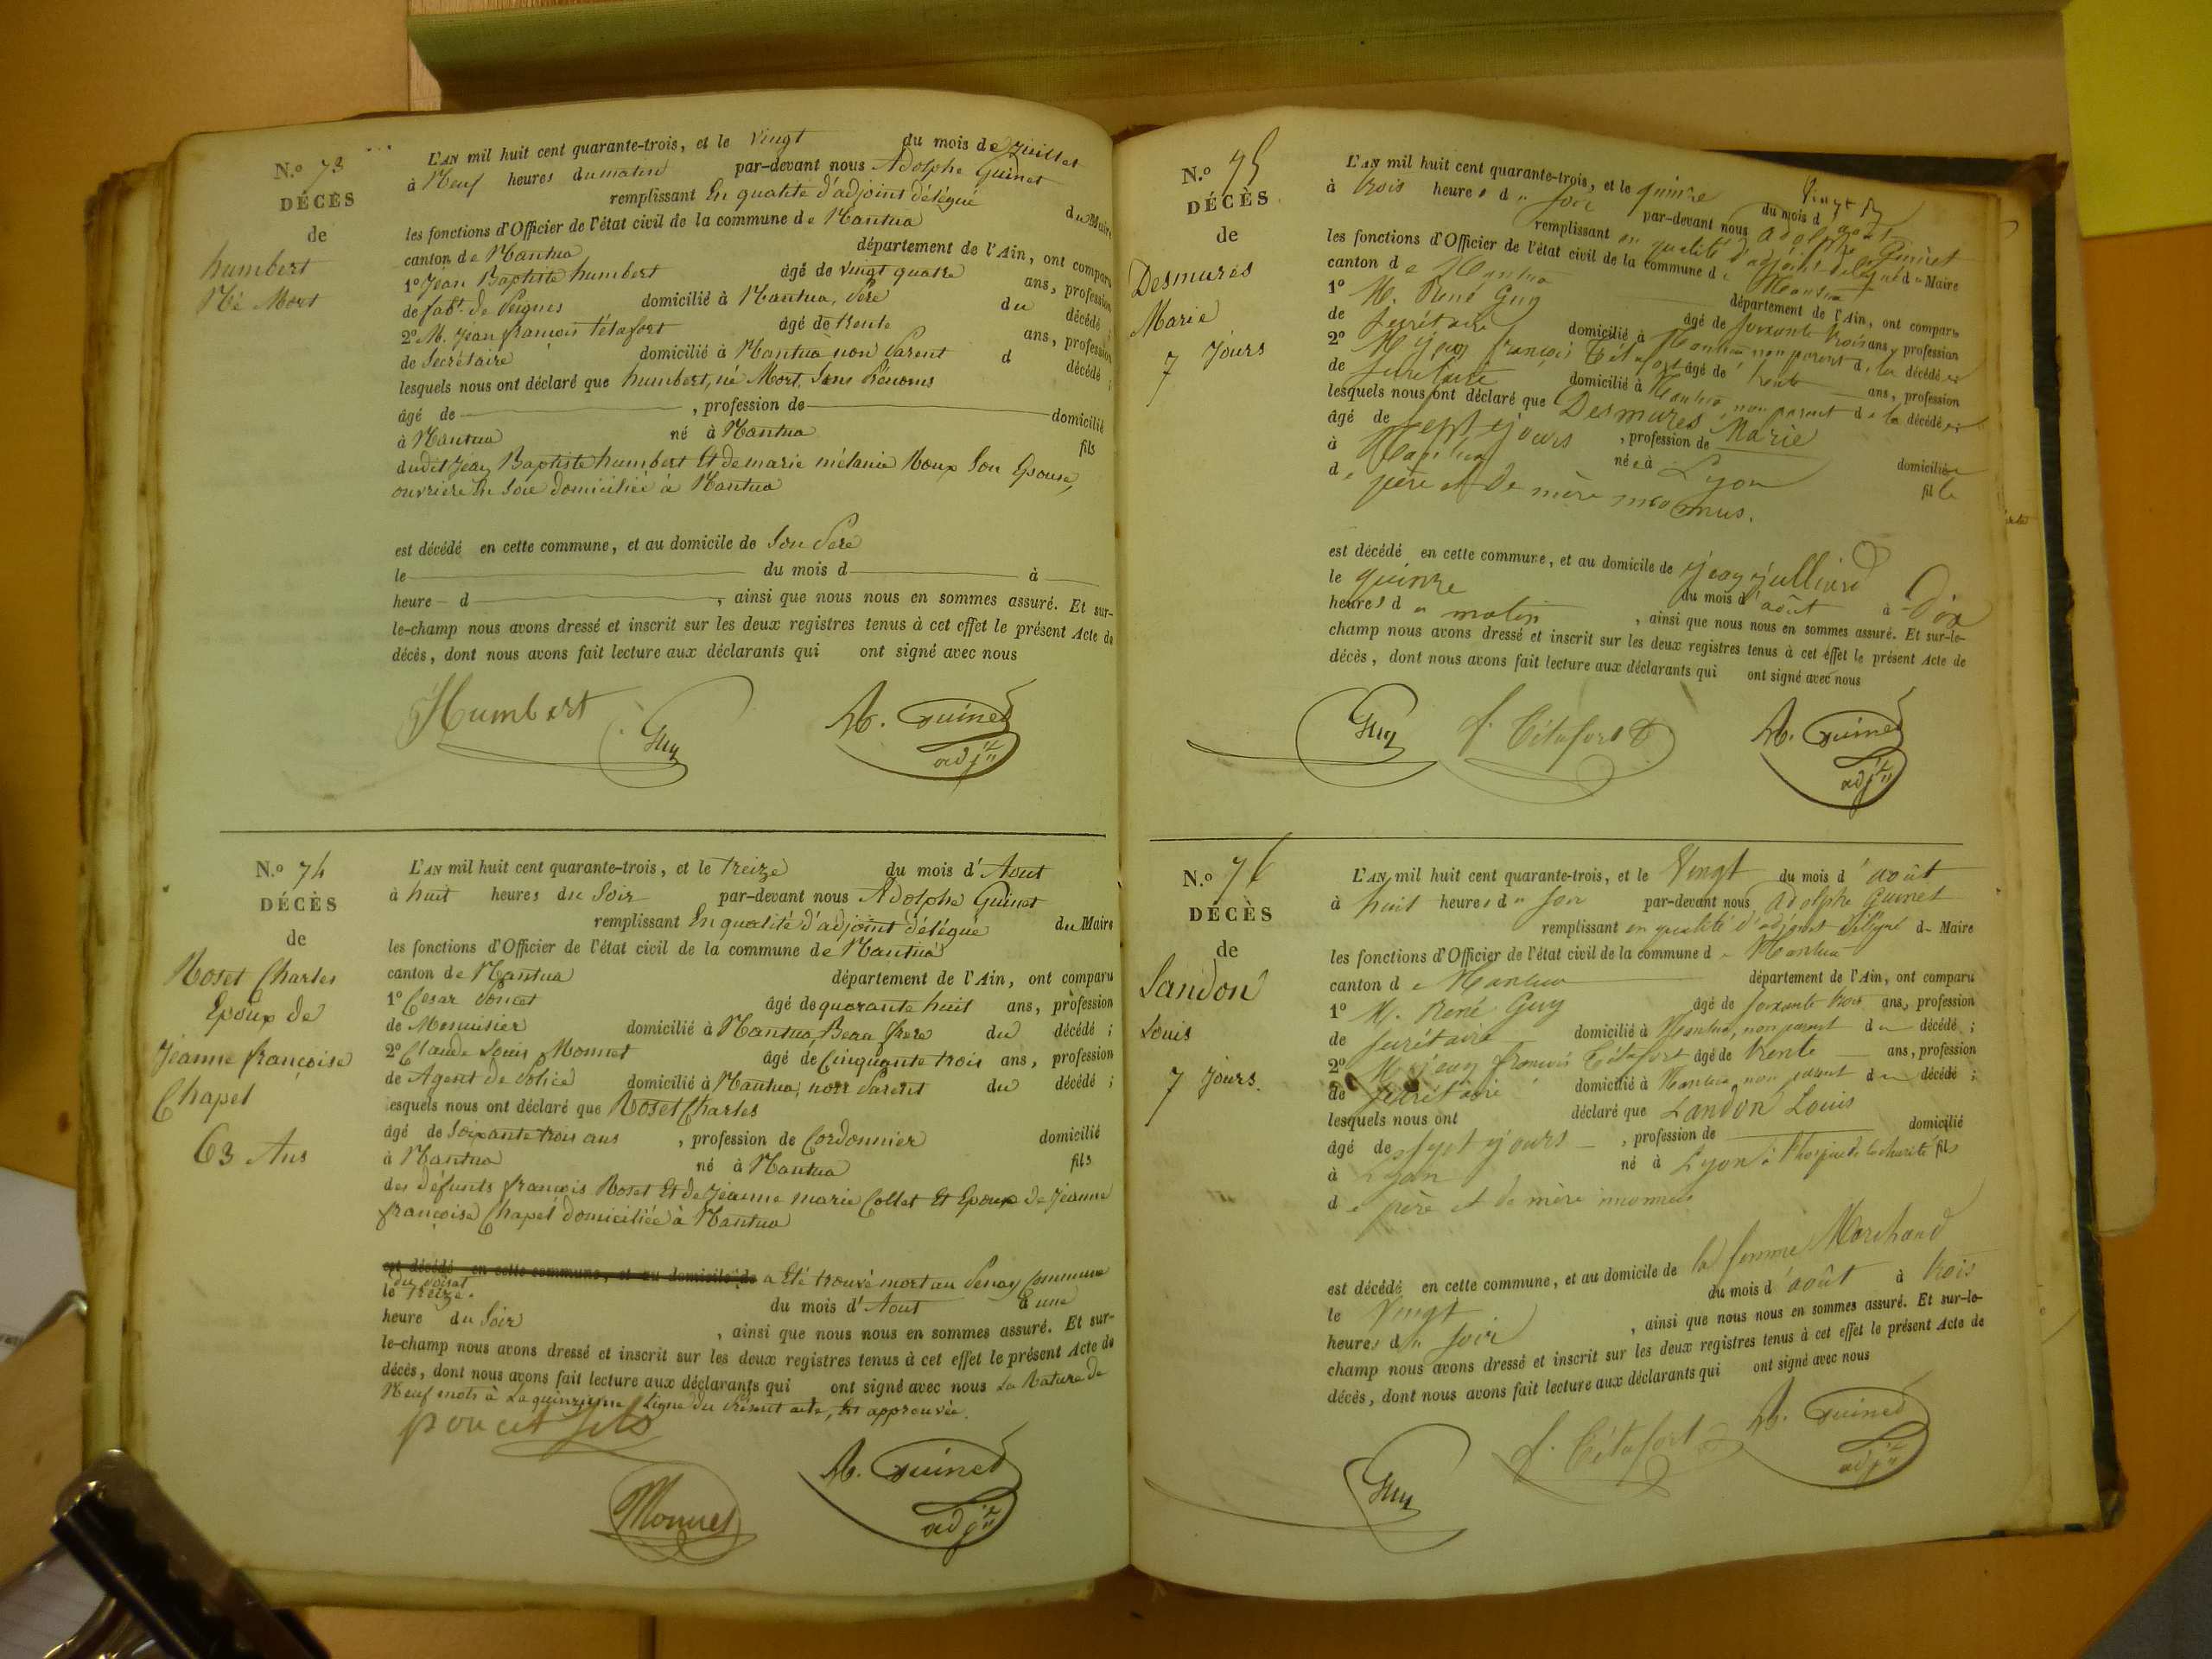 N.º 73
DÉCÈS
de
humbert
Né Mort
L'AN mil huit cent quarante-trois, et le Vingt du mois de Juillet
à Neuf heures du matin par-devant nous Adolphe Guinet
remplissant En qualité d'adjoint délégué du Maire
les fonctions d'Officier de l'état civil de la commune de Nantua
canton de Nantua département de l'Ain, ont comparu
1º Jean Baptiste humbert âgé de vingt quatre ans, profession
de fabt. de Peignes domicilié à Nantua, Père du décédé ;
2º M. Jean françois Tétafort âgé de trente ans, profession
de Secrétaire domicilié à Nantua non Parent d décédé ;
lesquels nous ont déclaré que humbert, né Mort, Sans Prénoms
âgé de , profession de domicilié
à Nantua né à Nantua fils
dudit Jean Baptiste humbert Et de marie mélanie Roux Son Epouse,
ouvrière En Soie domiciliée à Nantua
est décédé en cette commune, et au domicile de Son Père
le du mois d à
heure d , ainsi que nous nous en sommes assuré. Et sur-
le-champ nous avons dressé et inscrit sur les deux registres tenus à cet effet le présent Acte de
décès, dont nous avons fait lecture aux déclarants qui ont signé avec nous
Humbert Guy A. Guinet
adjt
N.º 74
DÉCÈS
de
Roset Charles
Epoux de
Jeanne françoise
Chapel
63 Ans
L'AN mil huit cent quarante-trois, et le treize du mois d'Aout
à huit heures du Soir par-devant nous Adolphe Guinet
remplissant En qualité d'adjoint délégué du Maire
les fonctions d'Officier de l'état civil de la commune de Nantua
canton de Nantua département de l'Ain, ont comparu
1º Cesar Poncet âgé de quarante huit ans, profession
de Menuisier domicilié à Nantua, Beau frere du décédé ;
2º Claude Louis Monnet âgé de Cinquante trois ans, profession
de Agent de Police domicilié à Nantua, non Parent du décédé ;
lesquels nous ont déclaré que Roset Charles
âgé de Soixante trois ans , profession de Cordonnier domicilié
à Nantua né à Nantua fils
des défunts françois Roset Et de Jeanne marie Collet Et Epoux de Jeanne
françoise Chapel domiciliée à Nantua
est décédé en cette commune, et au domicile de a Eté trouvé mort au Commune
du
le Treize du mois d'Aout à une
heure du Soir , ainsi que nous nous en sommes assuré. Et sur-
le-champ nous avons dressé et inscrit sur les deux registres tenus à cet effet le présent Acte de
décès, dont nous avons fait lecture aux déclarants qui ont signé avec nous La Rature de
Neuf mots à La quinzieme Ligne du Présent acte, Est approuvée.
poncet fils
Monnet A. Guinet
adjt
N.º 75
DÉCÈS
de
Desmures
Marie
7 Jours
L'AN mil huit cent quarante-trois, et le quinze du mois d'août
à trois heures du soir par-devant nous Adolphe Guinet
remplissant en qualité d'adjoint délégué du Maire
les fonctions d'Officier de l'état civil de la commune de Nantua
canton de Nantua département de l'Ain, ont comparu
1º M. René Guy âgé de soixante trois ans, profession
de secrétaire domicilié à Nantua non parent de la décédée ;
2º M. Jean françois Tétafort âgé de trente ans, profession
de secrétaire domicilié à Nantua, non parent de la décédée ;
lesquels nous ont déclaré que Desmures Marie
âgé de sept jours , profession de domiciliée
à Nantua née à Lyon fille
de père et de mère inconnus.
est décédé en cette commune, et au domicile de Jean Julliard
le quinze du mois d'août à Dix
heures du matin , ainsi que nous nous en sommes assuré. Et sur-le-
champ nous avons dressé et inscrit sur les deux registres tenus à cet effet le présent Acte de
décès, dont nous avons fait lecture aux déclarants qui ont signé avec nous
Guy f. Tétafort A. Guinet
adjt
N.º 76
DÉCÈS
de
Landon
Louis
7 Jours.
L'AN mil huit cent quarante-trois, et le Vingt du mois d'août
à huit heures du soir par-devant nous Adolphe Guinet
remplissant en qualité d'adjoint délégué du Maire
les fonctions d'Officier de l'état civil de la commune de Nantua
canton de Nantua département de l'Ain, ont comparu
1º M. René Guy âgé de soixante trois ans, profession
de secrétaire domicilié à Nantua, non parent du décédé ;
2º M. Jean françois Tétafort âgé de trente ans, profession
de secrétaire domicilié à Nantua, non parent du décédé ;
lesquels nous ont déclaré que Landon Louis
âgé de sept jours , profession de domicilié
à Lyon né à Lyon à l'hospice de la charité fils
de père et de mère inconnus
est décédé en cette commune, et au domicile de la femme Marchand
le Vingt du mois d'août à trois
heures du soir , ainsi que nous nous en sommes assuré. Et sur-le-
champ nous avons dressé et inscrit sur les deux registres tenus à cet effet le présent Acte de
décès, dont nous avons fait lecture aux déclarants qui ont signé avec nous
Guy f. Tétafort A. Guinet
adjt